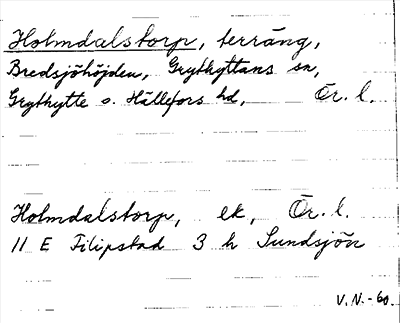 Holmdalstorp, terräng,
Bredsjöhöjden, Grythyttans sn,
Grythytte o. Hällefors hd, Ör. l.
Holmdalstorp, ek, Ör. l.
11 E Filipstad 3 h Sundsjön
V.N.-60.